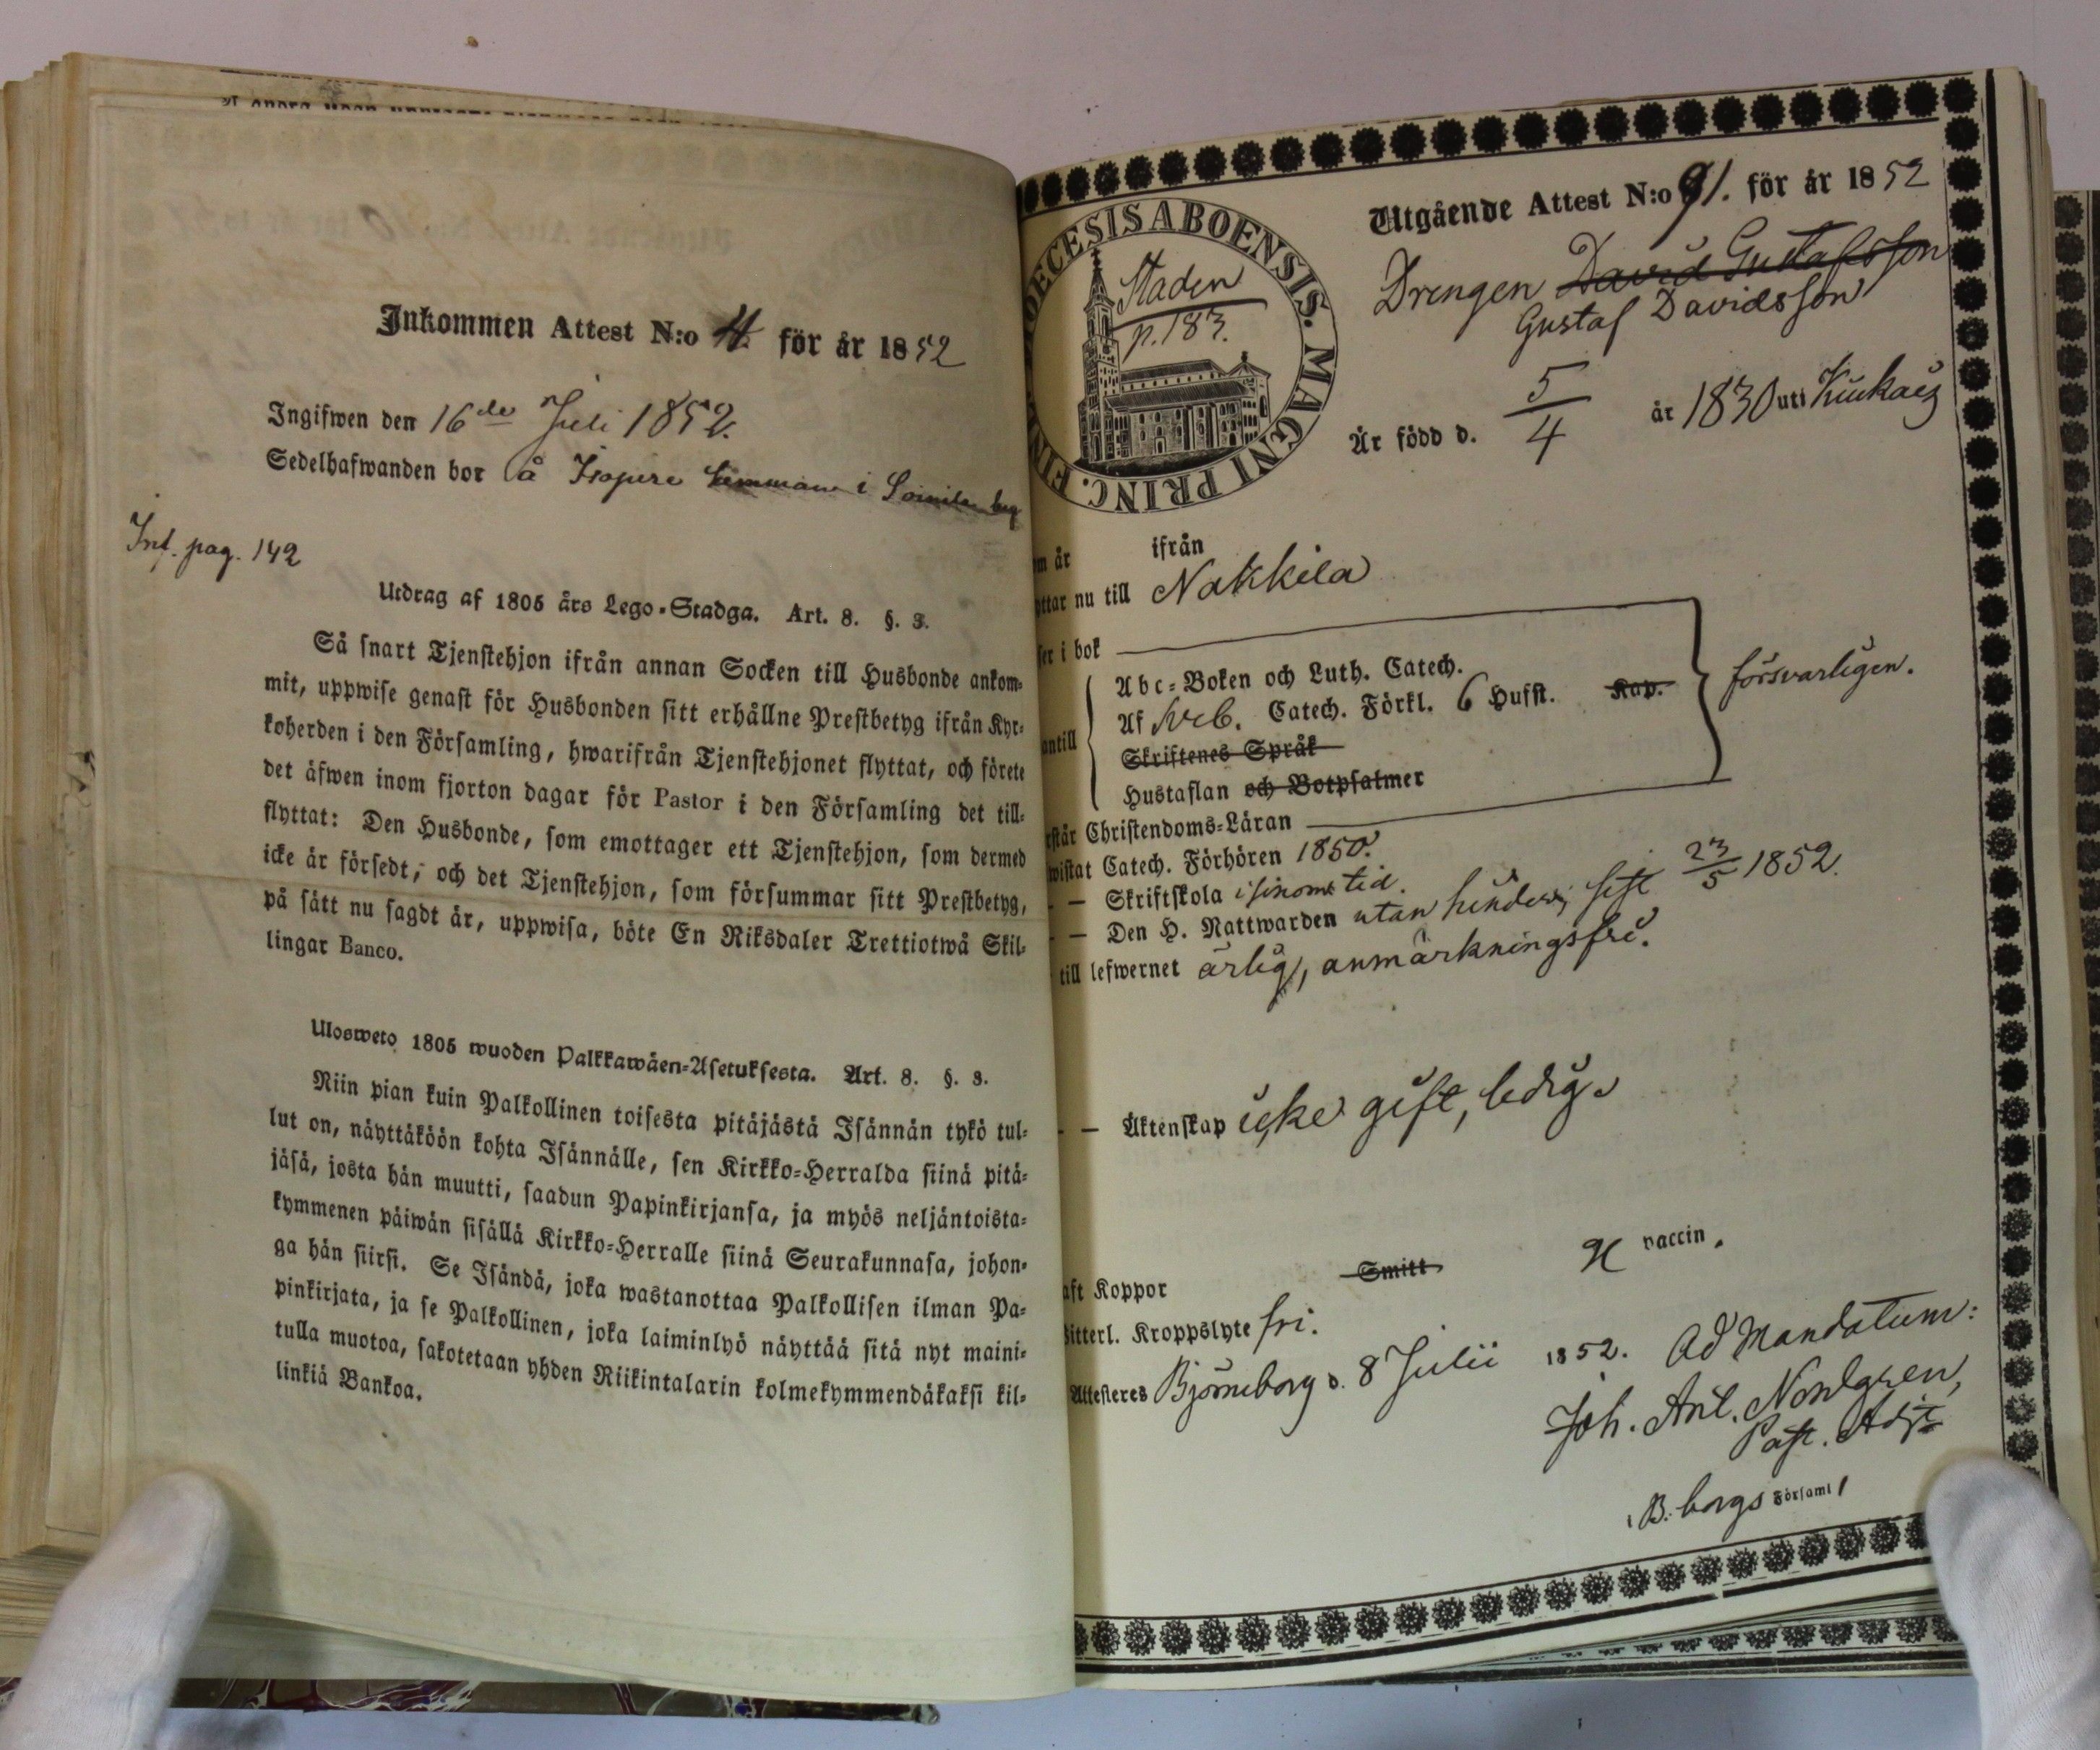 Inkommen Attest N:o 4. för år 1852
Ingifwen den 16de Juli 1852.
Sedelhafwanden bor å i
Inf. pag. 142
Utdrag af 1805 års Lego-Stadga. Art. 8. §. 3.
Så snart Tjenstehjon ifrån annan Socken till Husbonde ankom-
mit, uppwise genast för Husbonden sitt erhållne Prestbetyg ifrån Kyr-
koherden i den Församling, hwarifrån Tjenstehjonet flyttat, och förete
det äfwen inom fjorton dagar för Pastor i den Församling det till-
flyttat: Den Husbonde, som emottager ett Tjenstehjon, som dermed
icke är försedt, och det Tjenstehjon, som försummar sitt Prestbetyg,
på sätt nu sagdt är, uppwisa, böte En Riksdaler Trettiotwå Skil-
lingar Banco.
Ulosweto 1805 wuoden Palkkawäen-Asetuksesta. Art. 8. §. 3.
Niin pian kuin Palkollinen toisesta pitäjästä Isännän tykö tul-
lut on, näyttäköön kohta Isännälle, sen Kirkko-Herralda siinä pitä-
jäsä, josta hän muutti, saadun Papinkirjansa, ja myös neljäntoista-
kymmenen päiwän sisällä Kirkko-Herralle siinä Seurakunnasa, johon-
ga hän siirsi. Se Isändä, joka wastanottaa Palkollisen ilman Pa-
pinkirjata, ja se Palkollinen, joka laiminlyö näyttää sitä nyt maini-
tulla muotoa, sakotetaan yhden Riikintalarin kolmekymmendäkaksi kil-
linkiä Bankoa.
DIOECESIS ABOENSIS. MAGNI PRINC. FIN
Staden
p. 183.
Utgående Attest N:o 91. för år 1852
Drengen David Gustafsson
Gustaf Davidsson
Är född d. 5/4 år 1830 uti Kiukais
m år ifrån
yttar nu till Nakkila
ser i bok
Abc-Boken och Luth. Catech.
Af Sveb. Catech. Förkl. 6 Hufst. Kap.
försvarligen.
antill
Skriftenes Språk
Hustaflan och Botpsalmer
rstår Christendoms-Läran
wistat Catech. Förhören 1850.
— Skriftskola i sinom tid.
— Den H. Nattwarden utan hinder, sist 23/5 1852.
till lefwernet ärlig, anmärkningsfri.
— Äktenskap icke gift, ledig.
aft Koppor Smitt vaccin.
Witterl. Kroppslyte fri.
Attesteres Björneborg d. 8 Julii 1852. Ad Mandatum:
Joh. Ant. Nordgren,
Past. Adjt
i B.borgs Församl